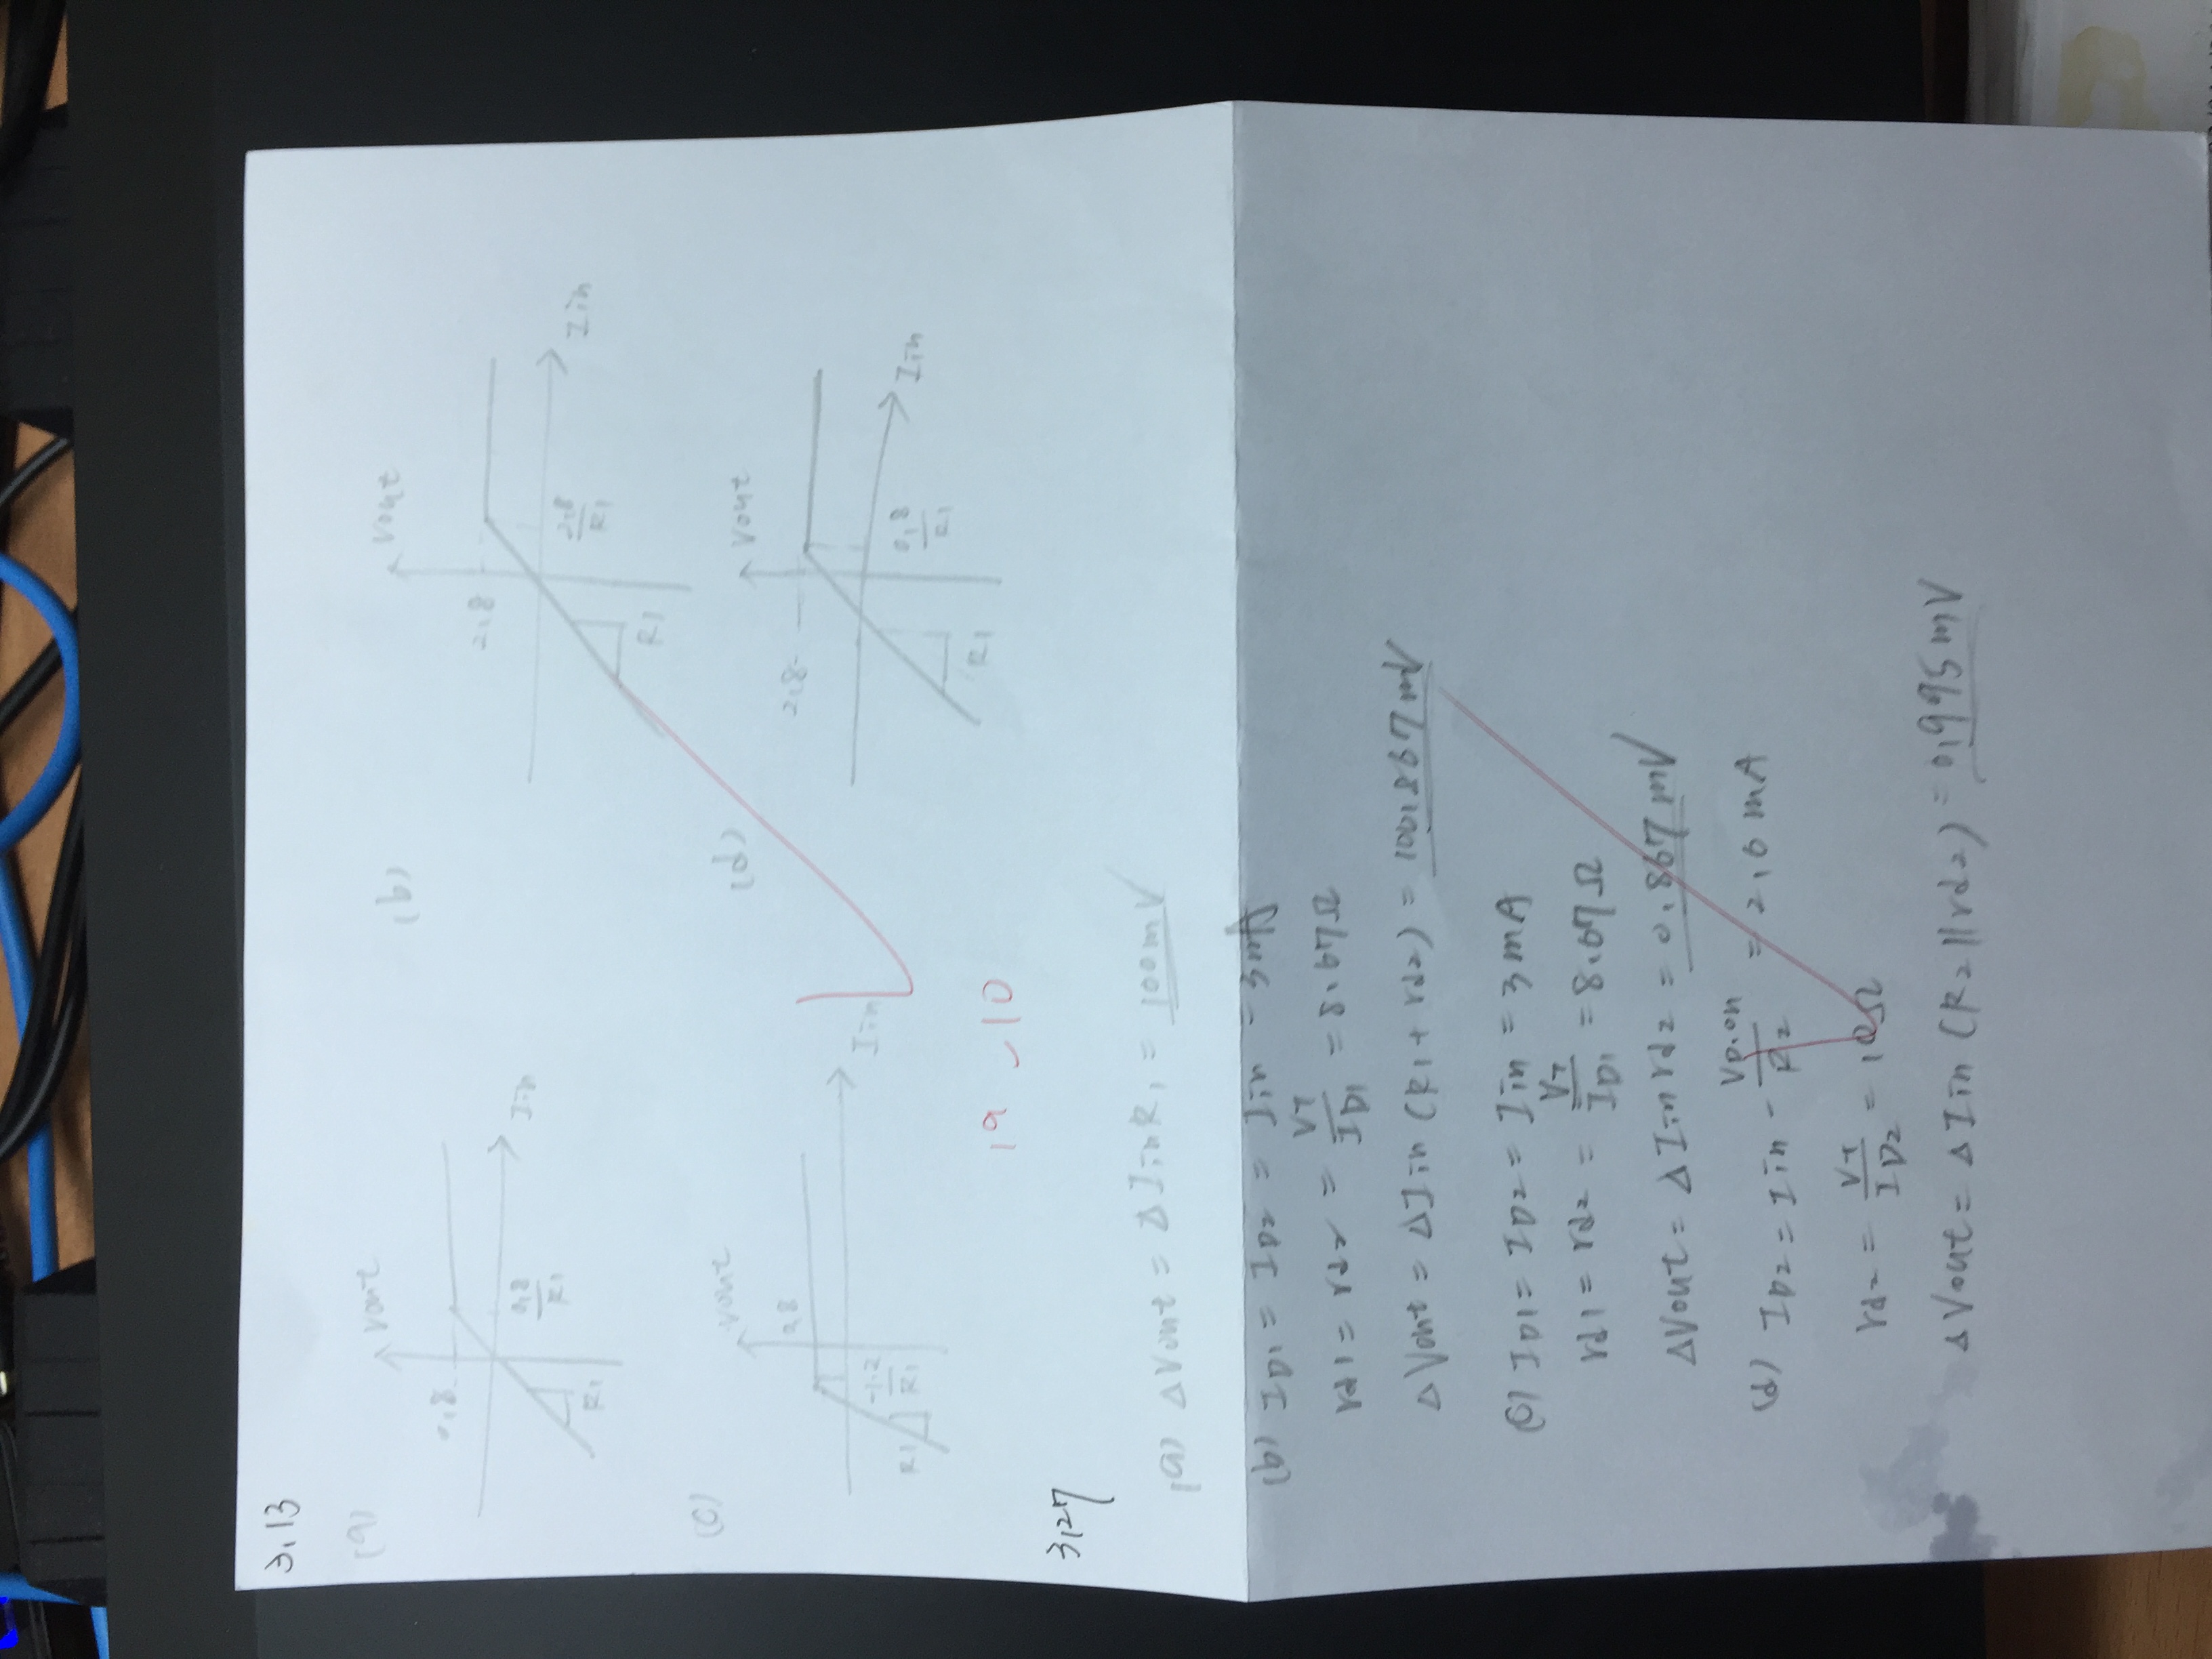 3.13
(a)
Vout
0.8
Iin
0.8
R1
R1
(b)
Vout
2.8
Iin
2.8
R1
R1
(c)
Vout
0.8
Iin
-1.2
R1
R1
(d)
Vout
2.8
Iin
0.8
R1
R1
-10
3.27
(a) ΔVout = ΔIinR1 = 100mV
(b) ID1 = ID2 = Iin = 3mA
rd1 = rd2 = VT / ID1 = 8.67Ω
ΔVout = ΔIin (R1 + rd2) = 100.867mV
(c) ID1 = ID2 = Iin = 3mA
rd1 = rd2 = VT / ID1 = 8.67Ω
ΔVout = ΔIin rd2 = 0.867mV
(d) ID2 = Iin - VD.on / R2 = 2.6mA
rd2 = VT / ID2 = 10Ω
ΔVout = ΔIin (R2 || rd2) = 0.995mV